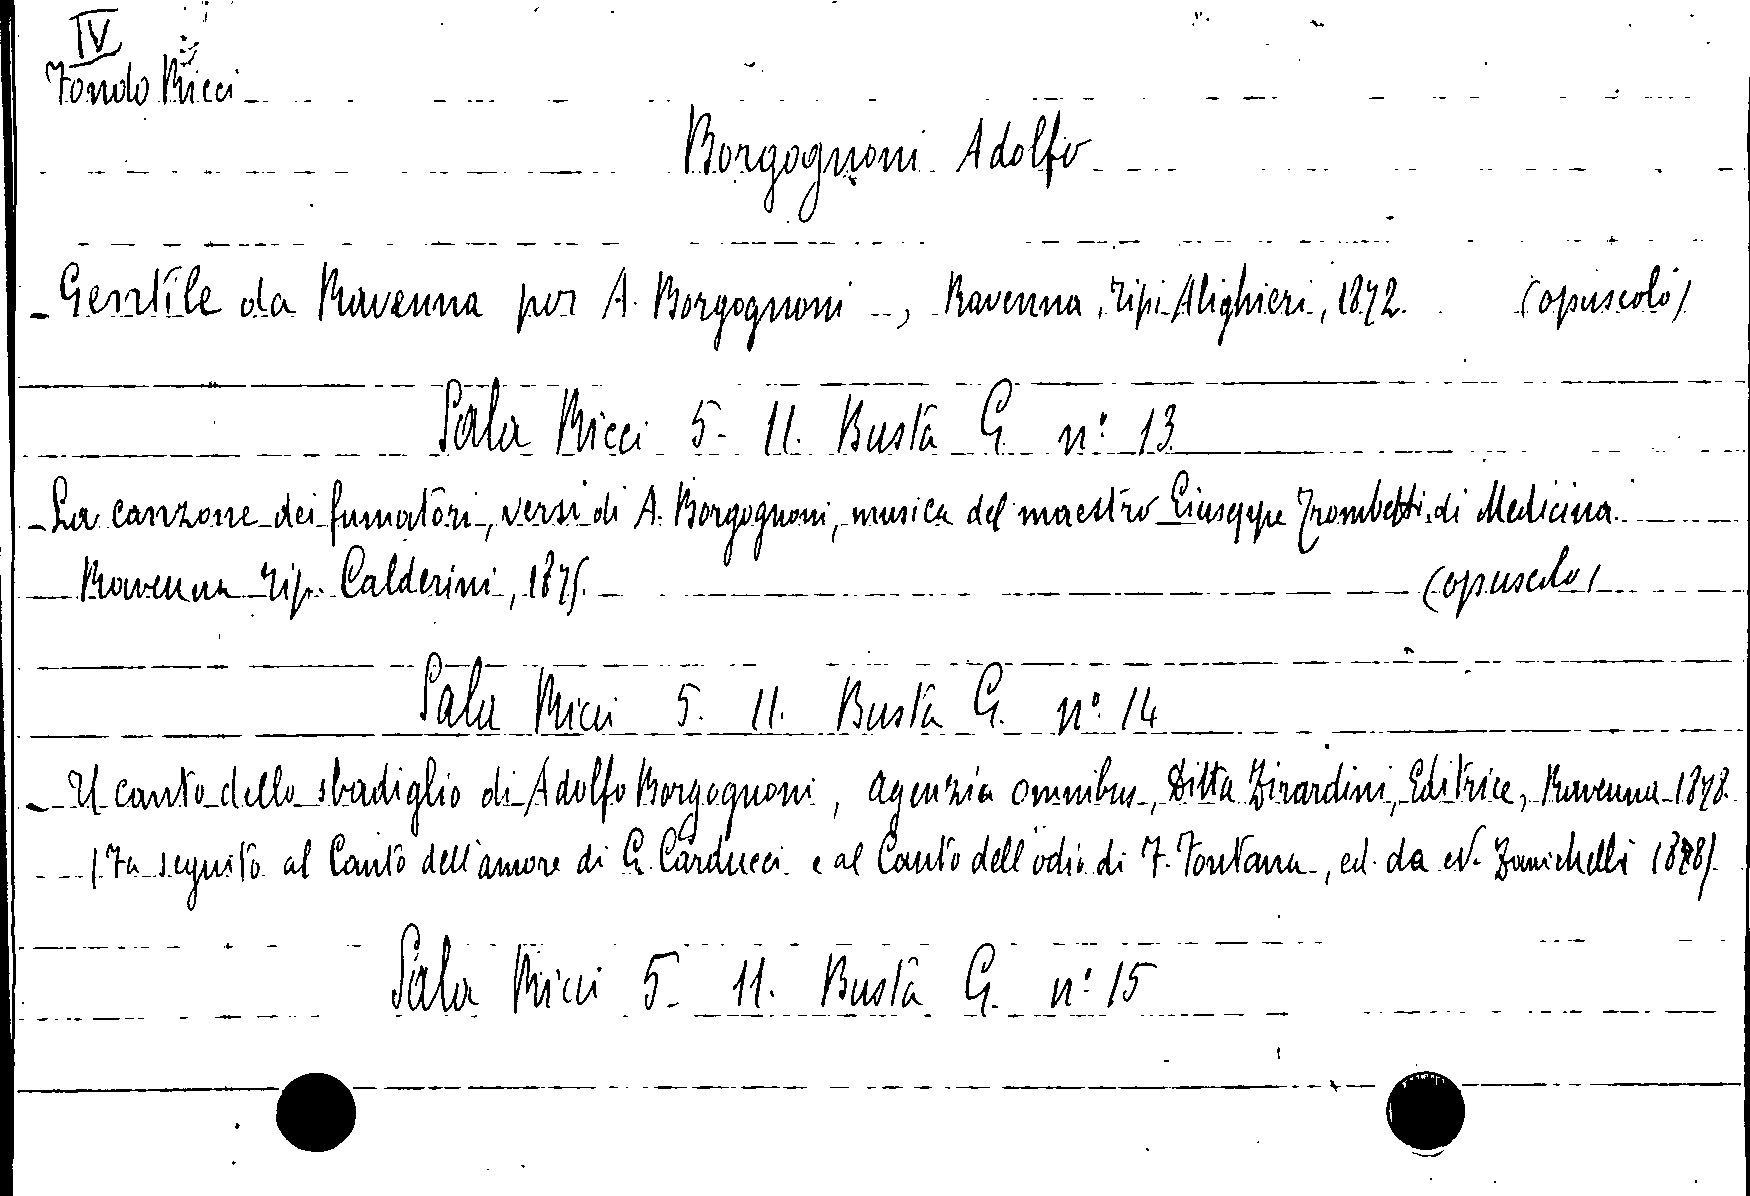 IV
Fondo Ricci
Borgognoni Adolfo
- Gentile da Ravenna per A. Borgognoni -, Ravenna, Tipi Alighieri, 1872. (opuscolo)
Sala Ricci 5. 11. Busta G. n° 13
- La canzone dei fumatori, versi di A. Borgognoni, musica del maestro Giuseppe Trombetti di Medicina.
Ravenna Tip. Calderini, 1875. (opuscolo)
Sala Ricci 5. 11. Busta G. n° 14
- Il canto dello sbadiglio di Adolfo Borgognoni, Agenzia Omnibus, Ditta Zirardini, Editrice, Ravenna 1878.
(Fa seguito al Canto dell'amore di G. Carducci e al Canto dell'odio di F. Fontana, ed. da N. Zanichelli 1878).
Sala Ricci 5. 11. Busta G. n° 15